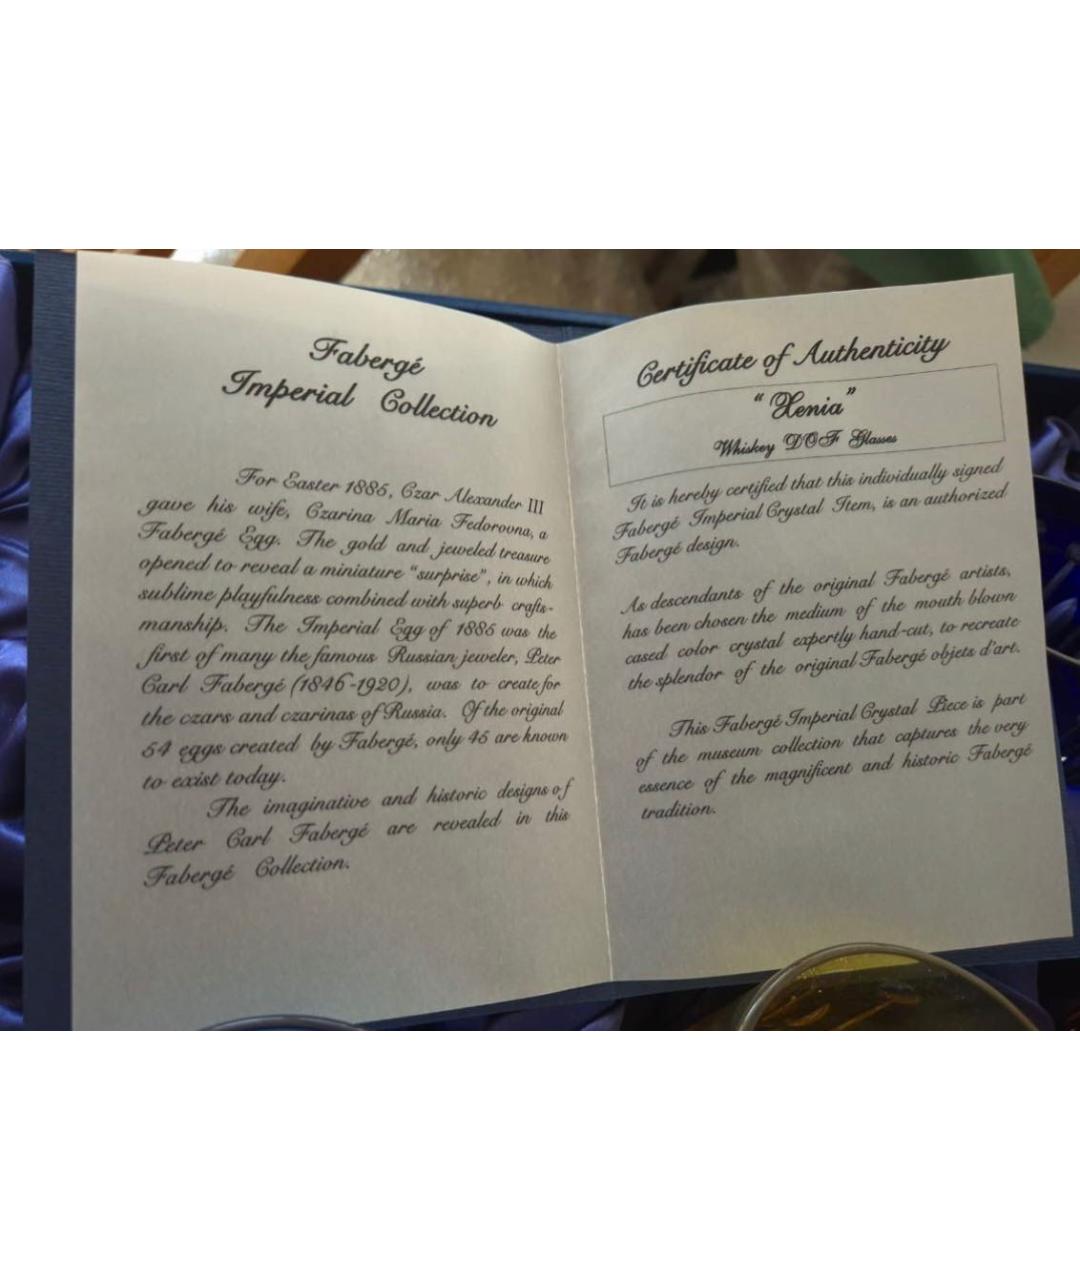 Fabergé
Imperial Collection
For Easter 1885, Czar Alexander III
gave his wife, Czarina Maria Fedorovna, a
Fabergé Egg. The gold and jeweled treasure
opened to reveal a miniature "surprise", in which
sublime playfulness combined with superb crafts-
manship. The Imperial Egg of 1885 was the
first of many the famous Russian jeweler, Peter
Carl Fabergé (1846-1920), was to create for
the czars and czarinas of Russia. Of the original
54 eggs created by Fabergé, only 45 are known
to exist today.
The imaginative and historic designs of
Peter Carl Fabergé are revealed in this
Fabergé Collection.
Certificate of Authenticity
"Xenia"
Whiskey DOF Glasses
It is hereby certified that this individually signed
Fabergé Imperial Crystal Item, is an authorized
Fabergé design.
As descendants of the original Fabergé artists,
has been chosen the medium of the mouth blown
cased color crystal expertly hand-cut, to recreate
the splendor of the original Fabergé objets d'art.
This Fabergé Imperial Crystal Piece is part
of the museum collection that captures the very
essence of the magnificent and historic Fabergé
tradition.